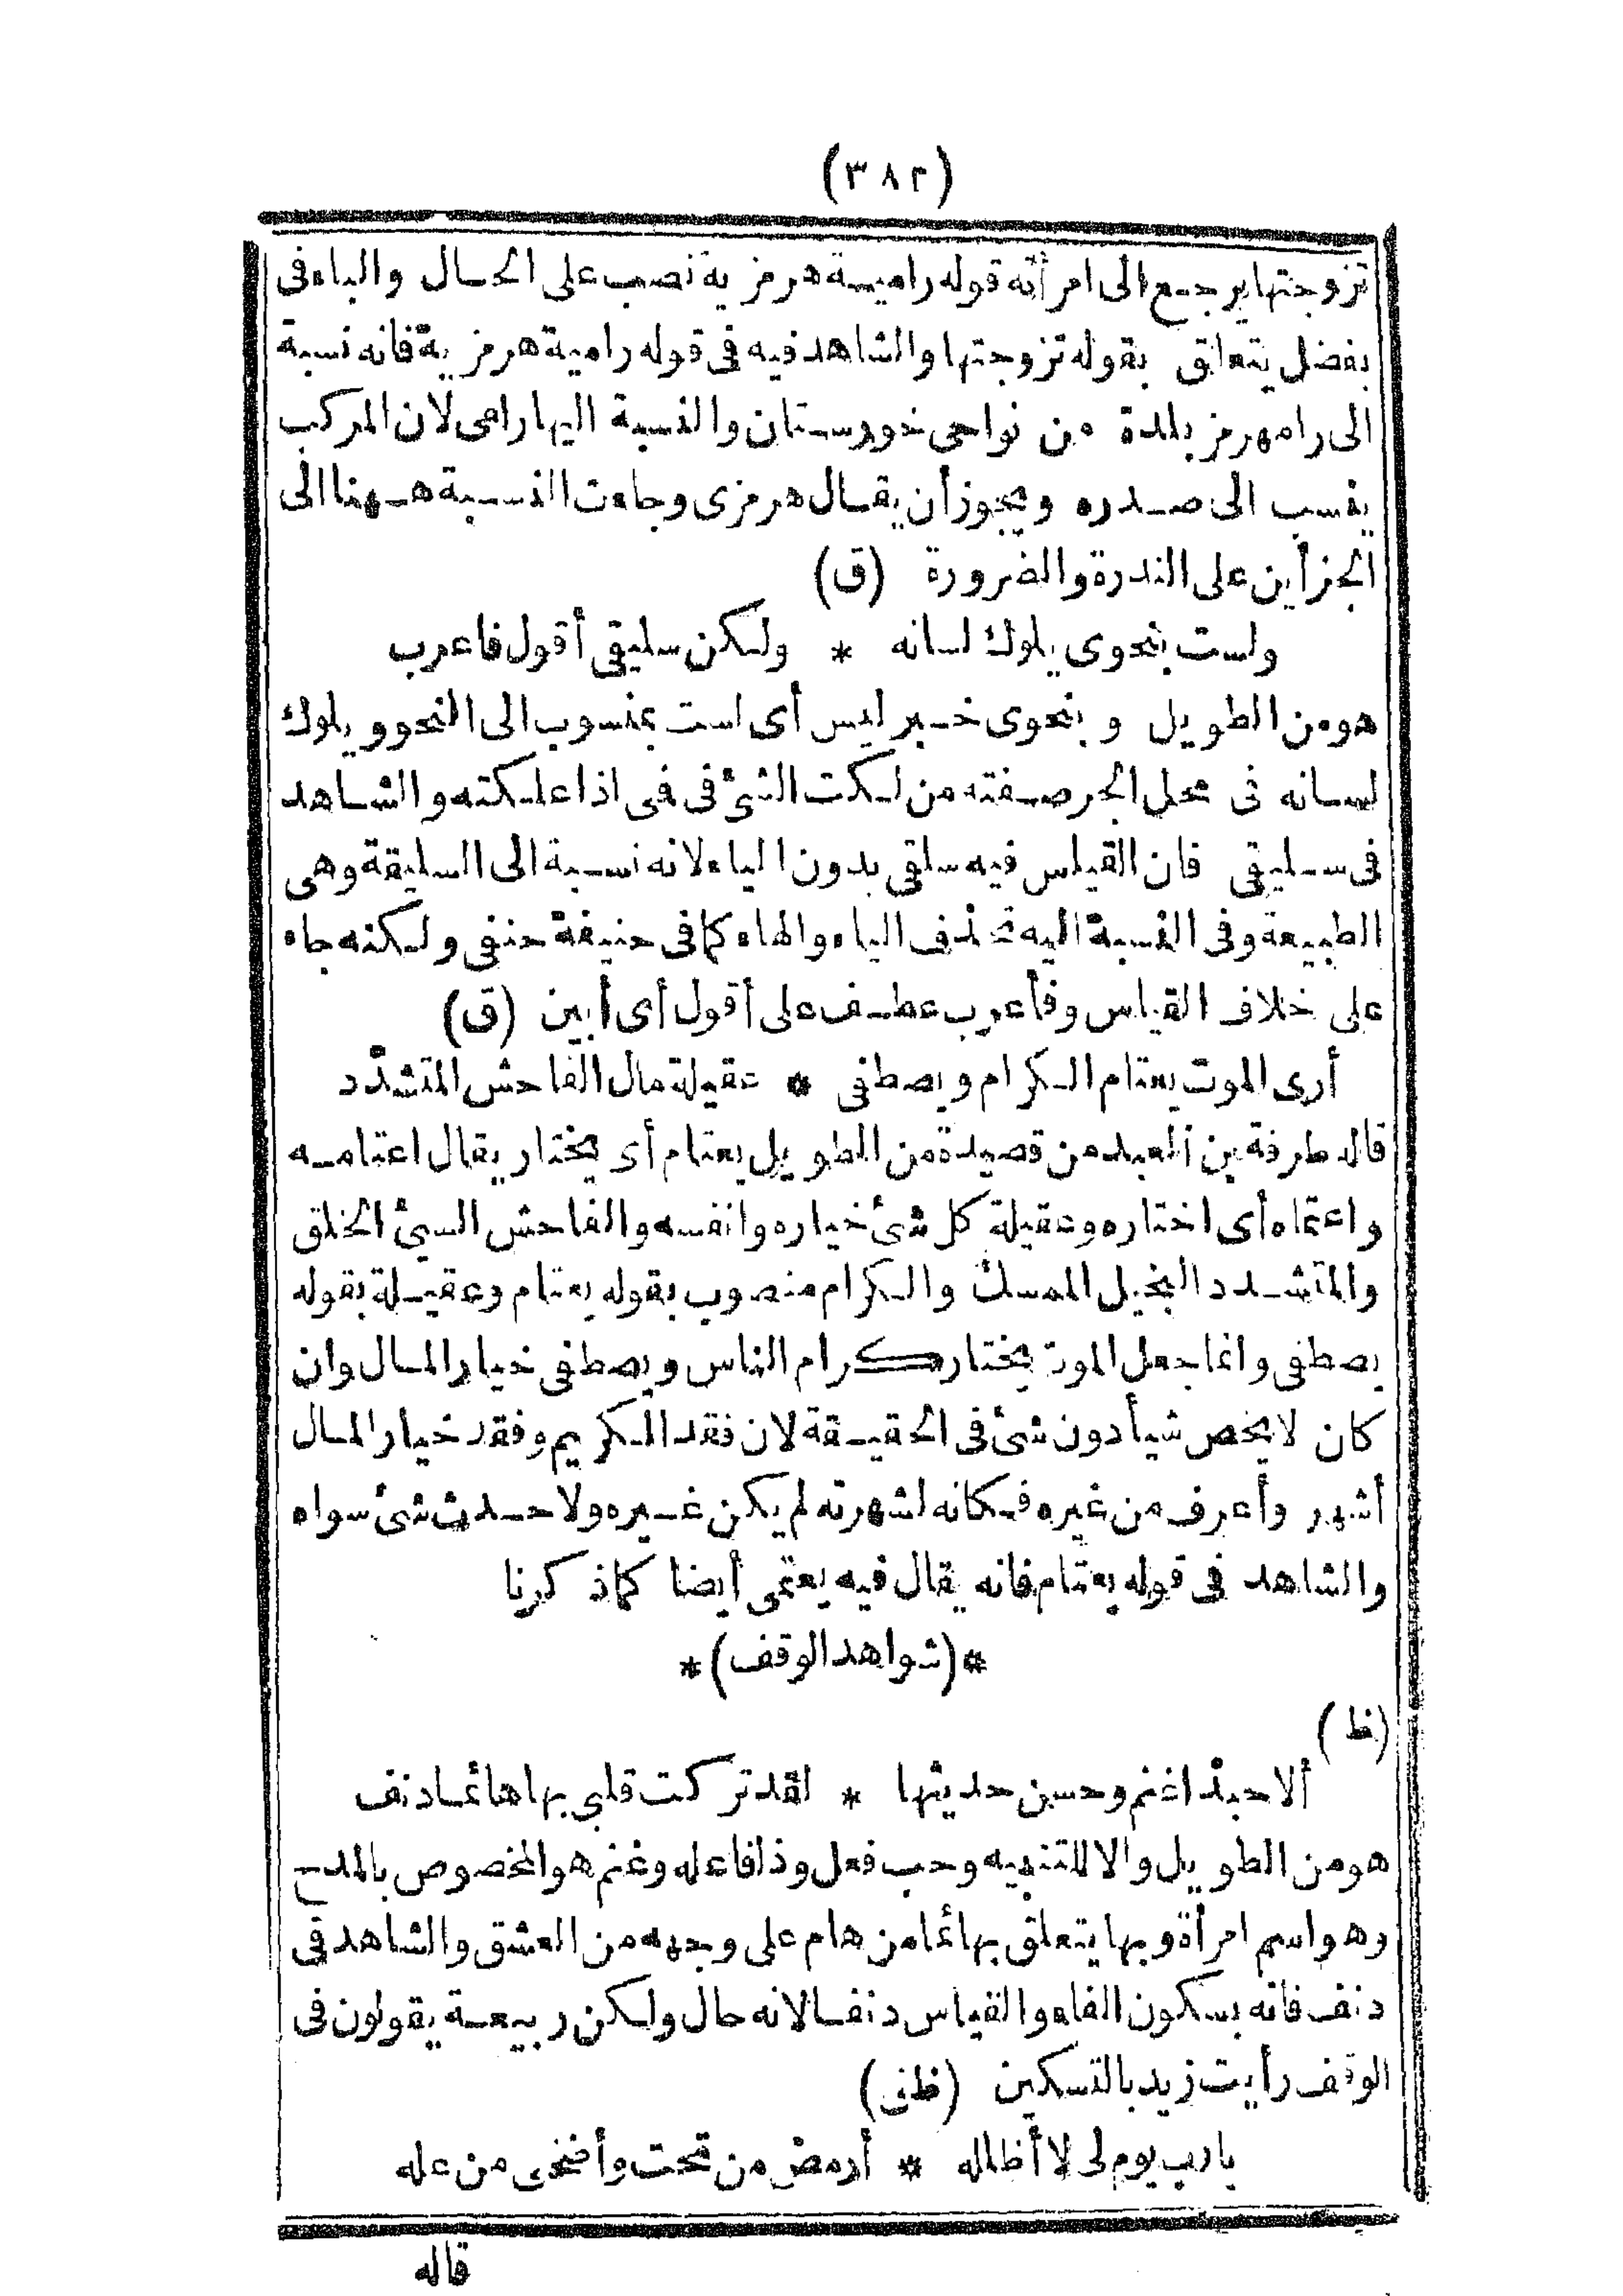 (٣٨٢)
تزوجتها يرجع الى امرأته قوله رامية هرمزية نصب على الحال والباء فى
بفضل يتعلق بقوله تزوجتها والشاهد فيه فى قوله رامية هرمزية فانه نسبة
الى رامهرمز بلدة من نواحى خورستان والنسبة اليها رامى لان المركب
ينسب الى صدره ويجوز أن يقال هرمزى وجاءت النسبة ههنا الى
الجزأين على الندرة والضرورة (ق)
ولست بنحوى يلوك لسانه * ولكن سليقى أقول فاعرب
هو من الطويل وبنحوى خبر ليس أى لست بمنسوب الى النحو ويلوك
لسانه فى محل الجر صفته من لكت الشئ فى فى اذا علكته والشاهد
فى سليقى فان القياس فيه سلقى بدون الياء لانه نسبة الى السليقة وهى
الطبيعة وفى النسبة اليه تحذف الياء والهاء كما فى حنيفة حنفى ولكنه جاء
على خلاف القياس وفأعرب عطف على أقول أى أبين (ق)
أرى الموت يعتام الكرام ويصطفى * عقيلة مال الفاحش المتشدّد
قاله طرفة بن العبد من قصيدة من الطويل يعتام أى يختار يقال اعتامه
واعتماه أى اختاره وعقيلة كل شئ خياره وانفسه والفاحش السيئ الخلق
والمتشدد البخيل الممسك والكرام منصوب بقوله يعتام وعقيلة بقوله
يصطفى وانما جعل الموت يختار كرام الناس ويصطفى خيار المال وان
كان لا يخص شيأ دون شئ فى الحقيقة لان فقد الكريم وفقد خيار المال
أشهر وأعرف من غيره فكانه لشهرته لم يكن غيره ولا حدث شئ سواه
والشاهد فى قوله يعتام فانه يقال فيه يعتمى أيضا كما ذكرنا
*(شواهد الوقف)*
(ظ)
ألا حبذا غنم وحسن حديثها * لقد تركت قلبى بها هائما دنف
هو من الطويل والا للتنبيه وحب فعل وذا فاعله وغنم هو المخصوص بالمدح
وهو اسم امرأة وبها يتعلق بهائما من هام على وجهه من العشق والشاهد فى
دنف فانه بسكون الفاء والقياس دنفا لانه حال ولكن ربيعة يقولون فى
الوقف رأيت زيد بالتسكين (ظفى)
يا رب يوم لى لا أظلله * أرمض من تحت وأضحى من عله
قاله